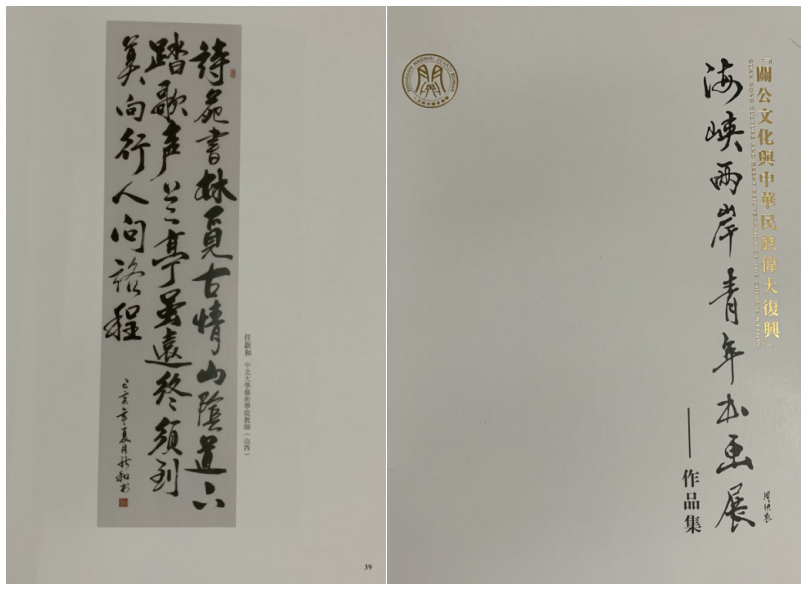 詩苑書林覓古情山陰道上
踏歌声兰亭虽遠终须到
莫向行人问路程
己亥年夏月新和书
任新和 中北大學藝術學院教師（山西）
39
關公文化與中華民族偉大復興
海峡两岸青年书画展
——作品集